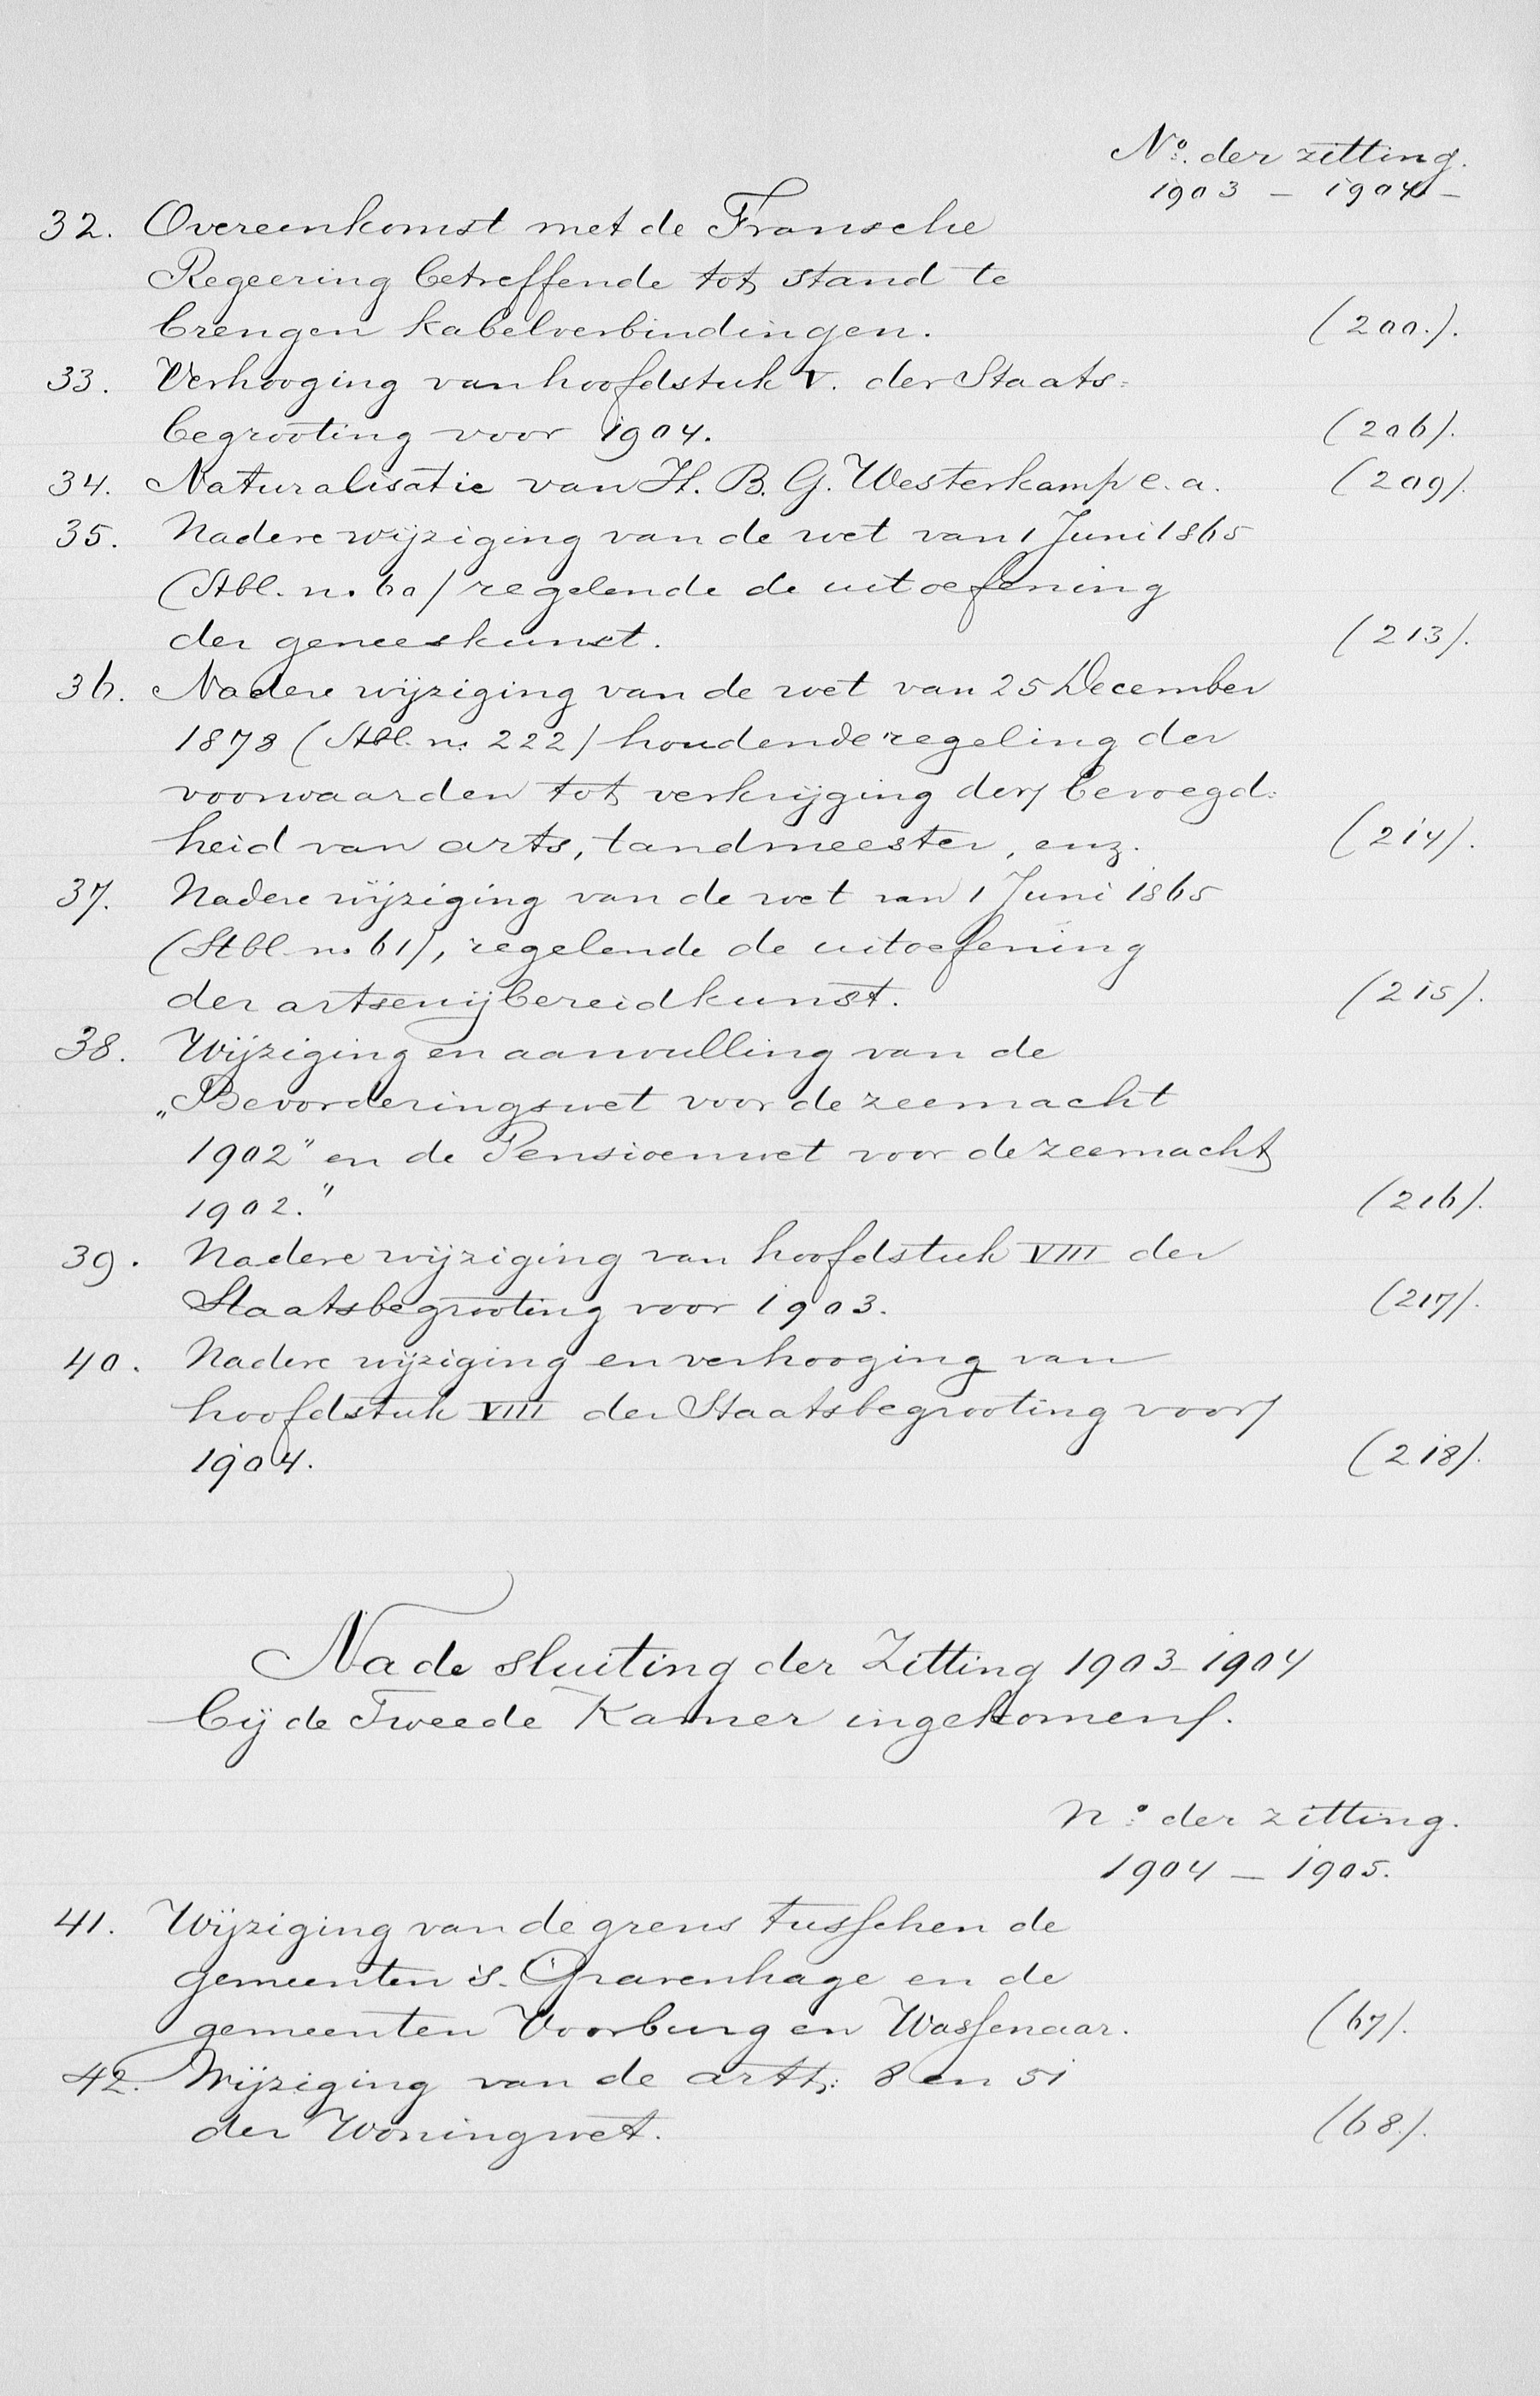 No. der zitting.
1903 - 1904 -
32. Overeenkomst met de Fransche
Regeering betreffende tot stand te
brengen kabelverbindingen. (200.).
33. Verhooging van hoofdstuk V. der Staats=
begrooting voor 1904. (206).
34. Naturalisatie van H. B. G. Westerkamp e. a. (209).
35. Nadere wijziging van de wet van 1 Juni 1865
(Stbl. n. 60) regelende de uitoefening
der geneeskunst. (213).
36. Nadere wijziging van de wet van 25 December
1878 (Stbl. n. 222) houdende regeling der
voorwaarden tot verkrijging der bevoegd=
heid van arts, tandmeester, enz. (214).
37. Nadere wijziging van de wet van 1 Juni 1865
(Stbl. n. 61), regelende de uitoefening
der artsenijbereidkunst. (215).
38. Wijziging en aanvulling van de
„Bevorderingswet voor de zeemacht
1902" en de Pensioenwet voor de zeemacht
1902." (216).
39. Nadere wijziging van hoofdstuk VIII der
Staatsbegrooting voor 1903. (217).
40. Nadere wijziging en verhooging van
hoofdstuk VIII der Staatsbegrooting voor
1904. (218).
Na de sluiting der Zitting 1903-1904
bij de Tweede Kamer ingekomen.
No. der zitting.
1904 - 1905.
41. Wijziging van de grens tusschen de
gemeenten 's. Gravenhage en de
gemeenten Voorburg en Wassenaar. (67).
42. Wijziging van de artt: 8 en 51
der Woningwet. (68.).